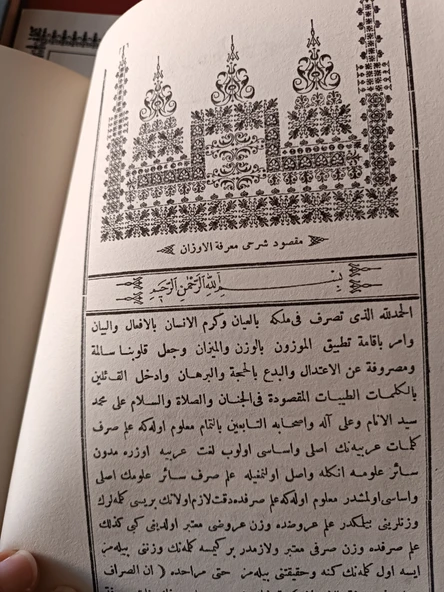 مقصود شرحى معرفة الاوزان
بسم الله الرحمن الرحيم
الحمدلله الذى تصرف فى ملكه بالعيان وكرم الانسان بالافعال والبيان
وامر باقامة تطبيق الموزون بالوزن والميزان وجعل قلوبنا سالمة
ومصروفة عن الاعتدال والبدع بالحجة والبرهان وادخل القائلين
بالكلمات الطيبات المقصودة فى الجنان والصلاة والسلام على محمد
سيد الانام وعلى آله واصحابه التابعين بالتمام معلوم اوله كه علم صرف
كلمات عربيه نك اصلى واساسى اولوب لغت عربيه اوزره مدون
سائر علومه انكله واصل اولنمغيله علم صرف سائر علومك اصلى
واساسى اولمشدر معلوم اوله كه علم صرفده دقت لازم اولانك بريسى كلمه لرك
وزنلرينى بيلمكدر علم عروضده وزن عروضى معتبر اولدينى كبى كذلك
علم صرفده وزن صرفى معتبر ولازمدر بر كيمسه كلمه نك وزننى بيله مز
ايسه اول كلمه نك كنه وحقيقتنى بيله مز حتى مراحده ( ان الصراف